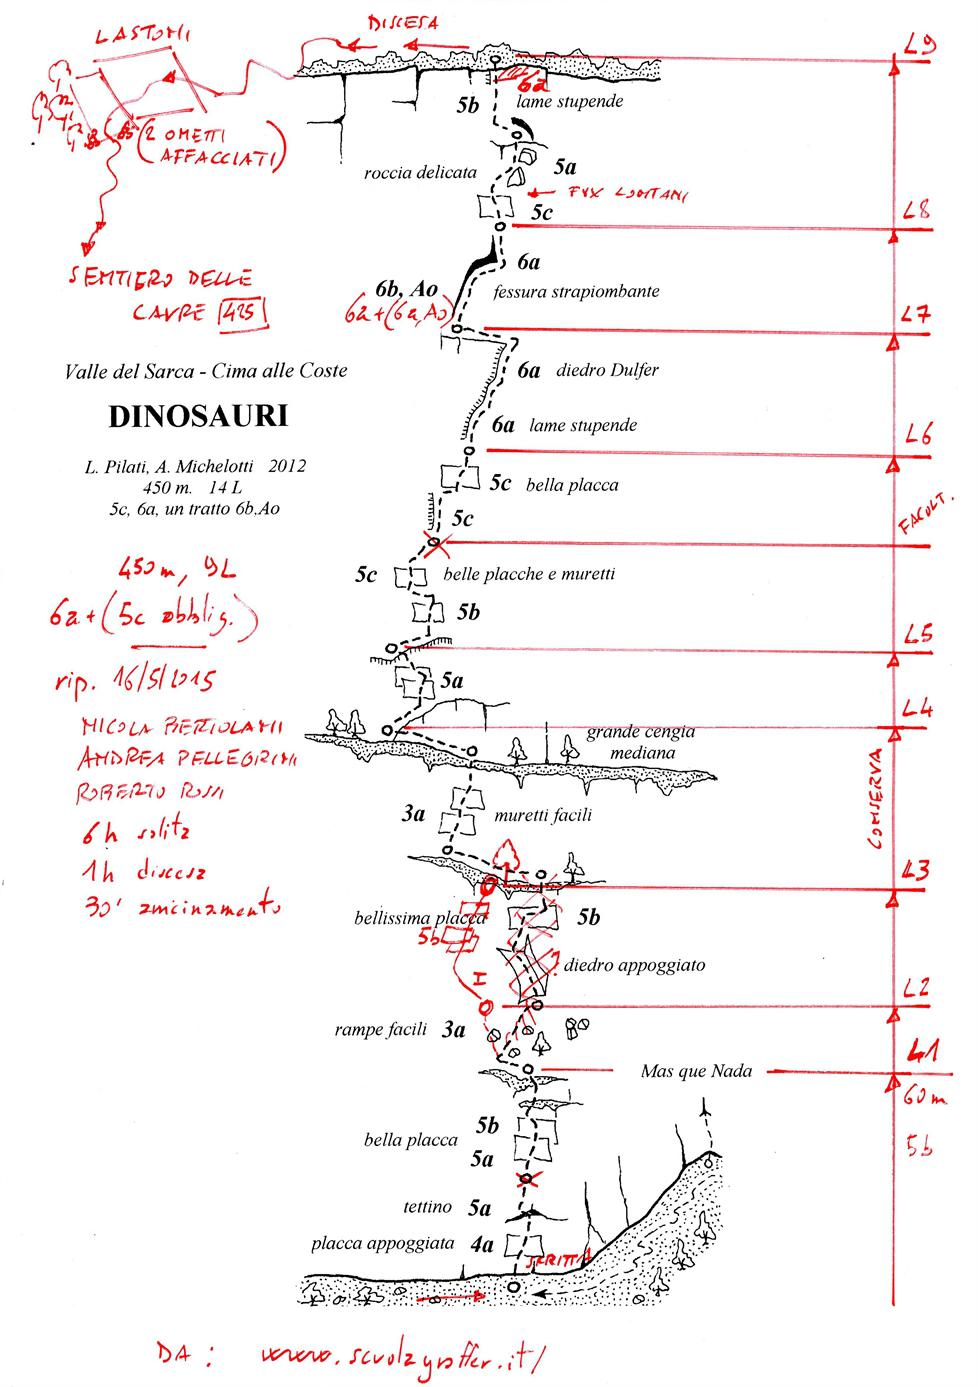 DISCESA
LASTONI
L9
6a
5b lame stupende
(2 OMETTI
AFFACCIATI)
roccia delicata 5a
FIX LONTANI
5c
L8
SENTIERO DELLE
CAVRE 425
6a
6b, Ao fessura strapiombante
6a+(6a,A0)
L7
Valle del Sarca - Cima alle Coste
6a diedro Dulfer
DINOSAURI
6a lame stupende
L6
L. Pilati, A. Michelotti 2012
450 m. 14 L
5c, 6a, un tratto 6b,Ao
5c bella placca
5c
FACOLT.
450m, 9L
5c belle placche e muretti
6a+(5c obblig.)
5b
L5
rip. 16/5/2015
5a
L4
NICOLA BERTOLANI
ANDREA PELLEGRINI
ROBERTO ROSSI
6h salita
1h discesa
30' avvicinamento
grande cengia
mediana
CONSERVA
3a muretti facili
L3
bellissima placca 5b
5b
diedro appoggiato
?
I
L2
rampe facili 3a
L1
Mas que Nada
60m
5b
5b
bella placca
5a
tettino 5a
placca appoggiata 4a
SCRITTA
DA: www.scuolagraffer.it/